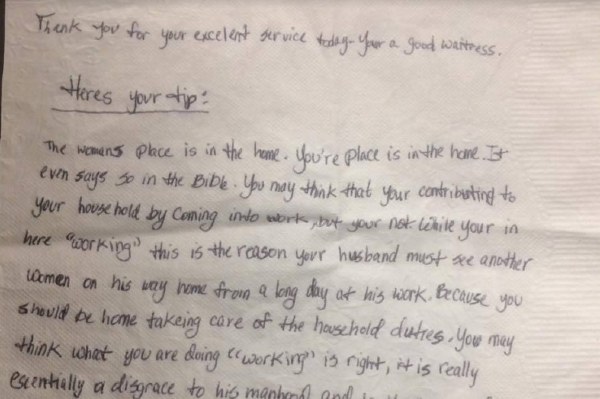 Thank you for your excelent service today- Your a good waitress.
Heres your tip:
The womans place is in the home. You're place is in the home. It
even says so in the Bible. You may think that your contributing to
your household by coming into work, but your not. While your in
here "working" this is the reason your husband must see another
women on his way home from a long day at his work. Because you
should be home takeing care of the household duties. You may
think what you are doing "working" is right, it is really
escentially a disgrace to his manhood and